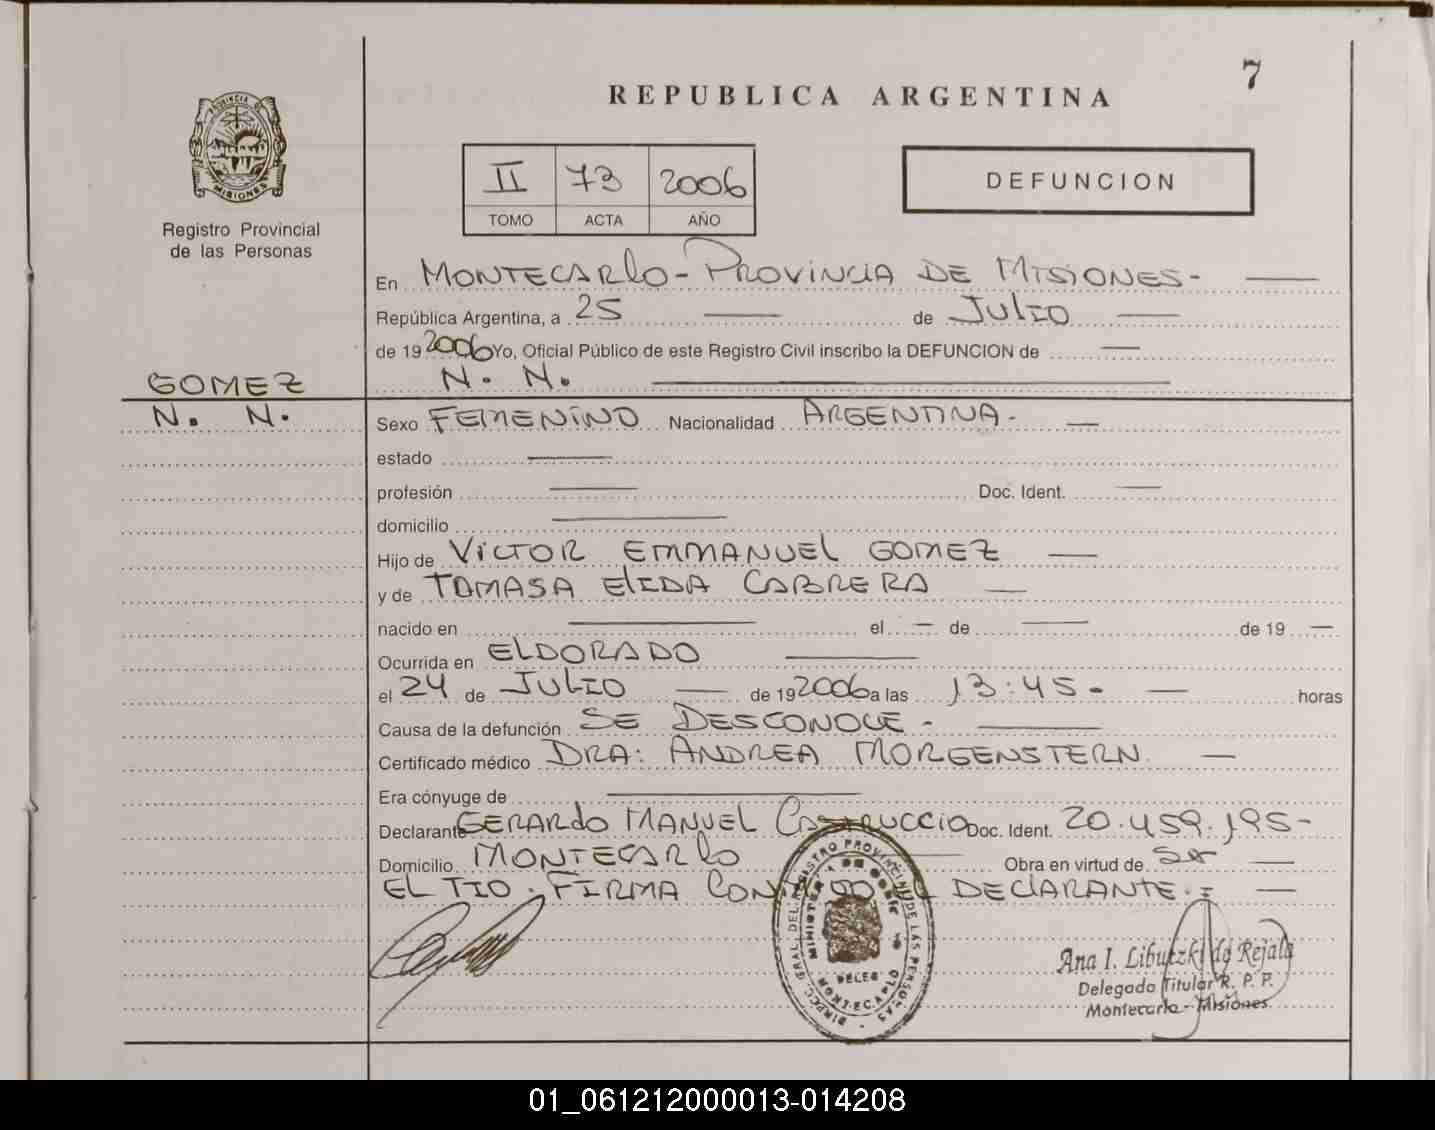 7
REPUBLICA ARGENTINA
PROVINCIA DE
MISIONES
Registro Provincial
de las Personas
II 73 2006
TOMO ACTA AÑO
DEFUNCION
En MONTECARLO - PROVINCIA DE MISIONES -
República Argentina, a 25 de JULIO
de 19 2006 Yo, Oficial Público de este Registro Civil inscribo la DEFUNCION de
N. N.
GOMEZ
N. N.
Sexo FEMENINO Nacionalidad ARGENTINA -
estado
profesión Doc. Ident.
domicilio
Hijo de VICTOR EMMANUEL GOMEZ
y de TOMASA ELIDA CABRERA
nacido en el de de 19
Ocurrida en ELDORADO
el 24 de JULIO de 19 2006 a las 13:45. horas
Causa de la defunción SE DESCONOCE -
Certificado médico DRA: ANDREA MORGENSTERN.
Era cónyuge de
Declarante GERARDO MANUEL CASTRUCCIO Doc. Ident. 20.459.195-
Domicilio MONTECARLO Obra en virtud de SER
EL TIO. FIRMA CONMIGO EL DECLARANTE.
DIRECC. GRAL. DEL REGISTRO PROVINCIAL DE LAS PERSONAS
MINISTERIO DE GOBIE
DELEG
MONTECARLO
Ana I. Libutzki de Rejala
Delegada Titular R. P. P.
Montecarlo - Misiones
01_061212000013-014208